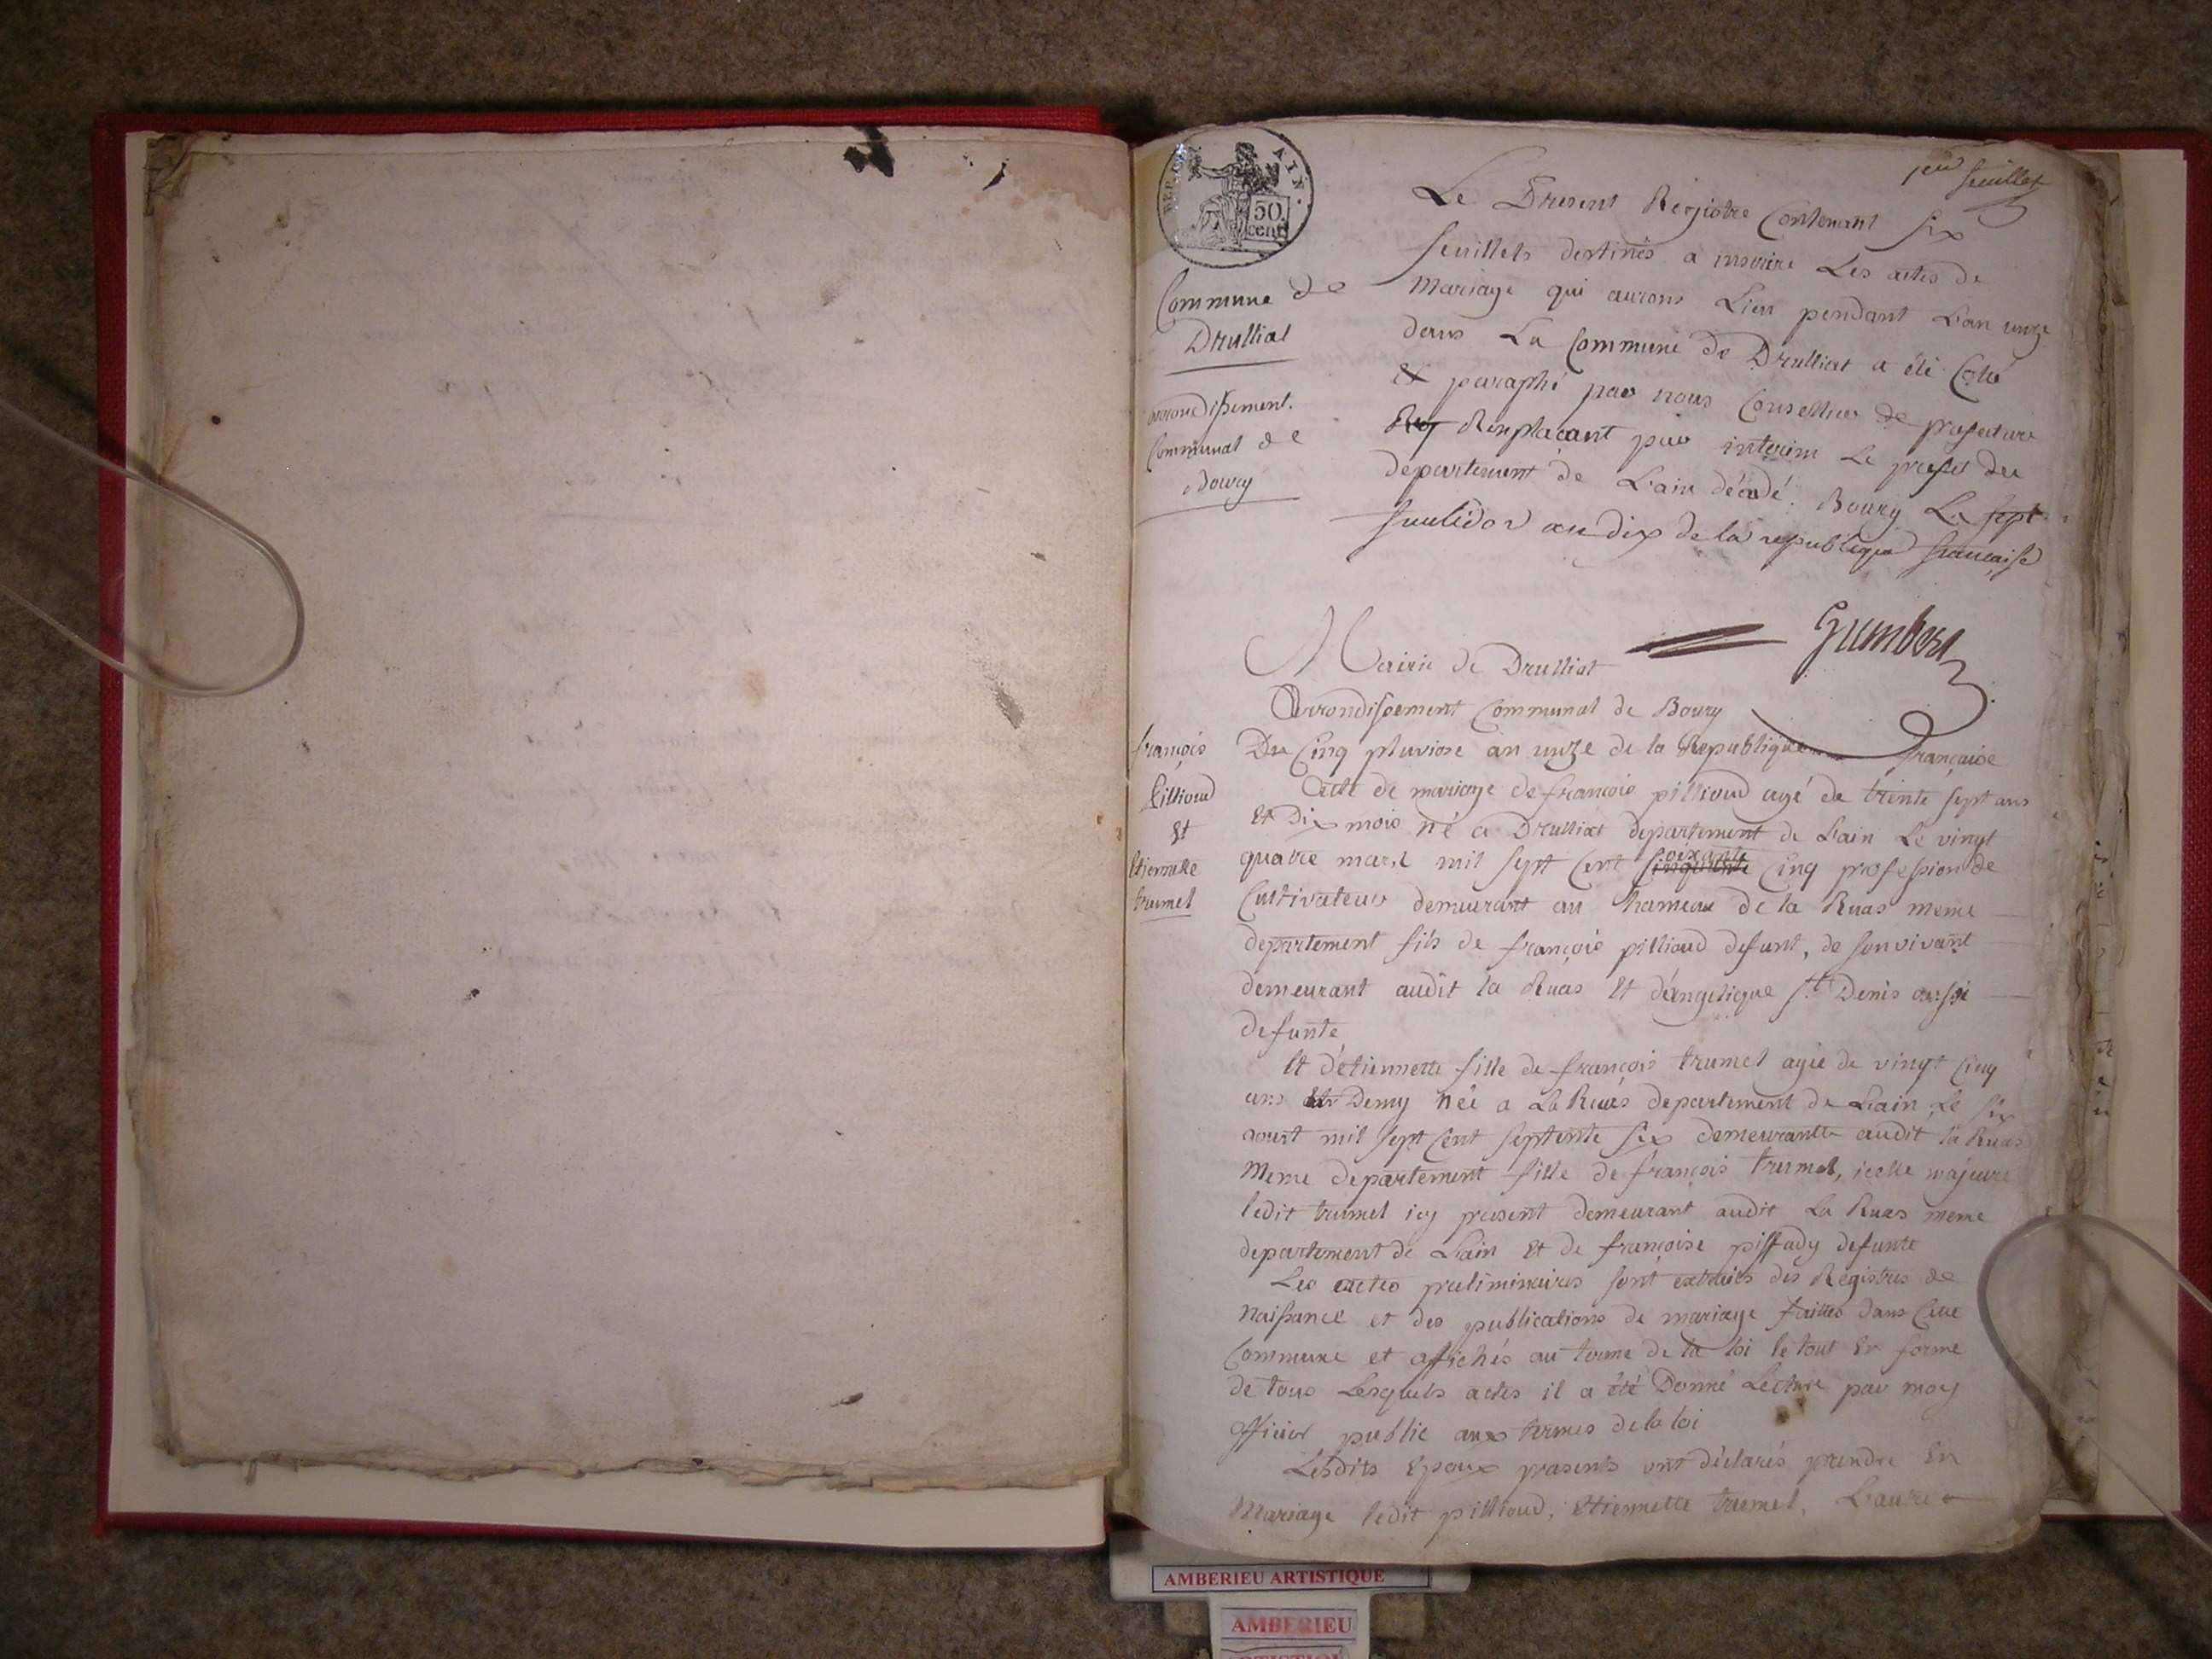 1er feuillet
REP. FRA. AIN.
50. cent.
Le Present Registre Contenant six
feuillets destinés a inscrire Les actes de
Mariage qui aurons Lieu pendant L'an unze
dans La Commune de Drulliat a été Coté
et paraphé par nous Conseiller de prefecture
Remplacant par interim Le prefet du
departement de L'ain décédé. Bourg Le sept
fructidor an dix de la republique francaise
Commune de
Drulliat
arrondissement.
Communal de
Bourg
Gumbert
Mairie de Drulliat
Arrondissement Communal de Bourg
françois
pillioud
Et
Etiennette
trumel
Du Cinq pluviose an unze de la Republique française
Acte de mariage de françois pillioud agé de trente sept ans
Et Dix mois né a Drulliat departement de L'ain Le vingt
quatre mars mil sept Cent soixante Cinq profession de
Cultivateur demeurant au hameau de la Ruas meme
departement fils de françois pillioud defunt, de son vivant
demeurant audit la Ruas Et d'angelique St Denis aussi
defunte
Et d'etiennette fille de françois trumel agée de vingt Cinq
ans Et Demy née a La Ruas departement de L'ain Le six
aoust mil sept Cent septente six demeurante audit la Ruas
Meme departement fille de françois trumel, icelle majeure
ledit trumel icy present demeurant audit La Ruas meme
departement de L'ain Et de françoise piffady defunte
Les actes preliminaires sont extraits des Registres de
Naissance et des publications de mariage faittes dans Cette
Commune et affichés au terme de la loi le tout En forme
de tous Lesquels actes il a été Donné Lecture par moy
officier public aux termes de la loi
Lesdits Epoux presents ont déclarés prendre En
Mariage ledit pillioud, Etiennette trumel, L'autre
AMBERIEU ARTISTIQUE
AMBERIEU
ARTISTIQUE